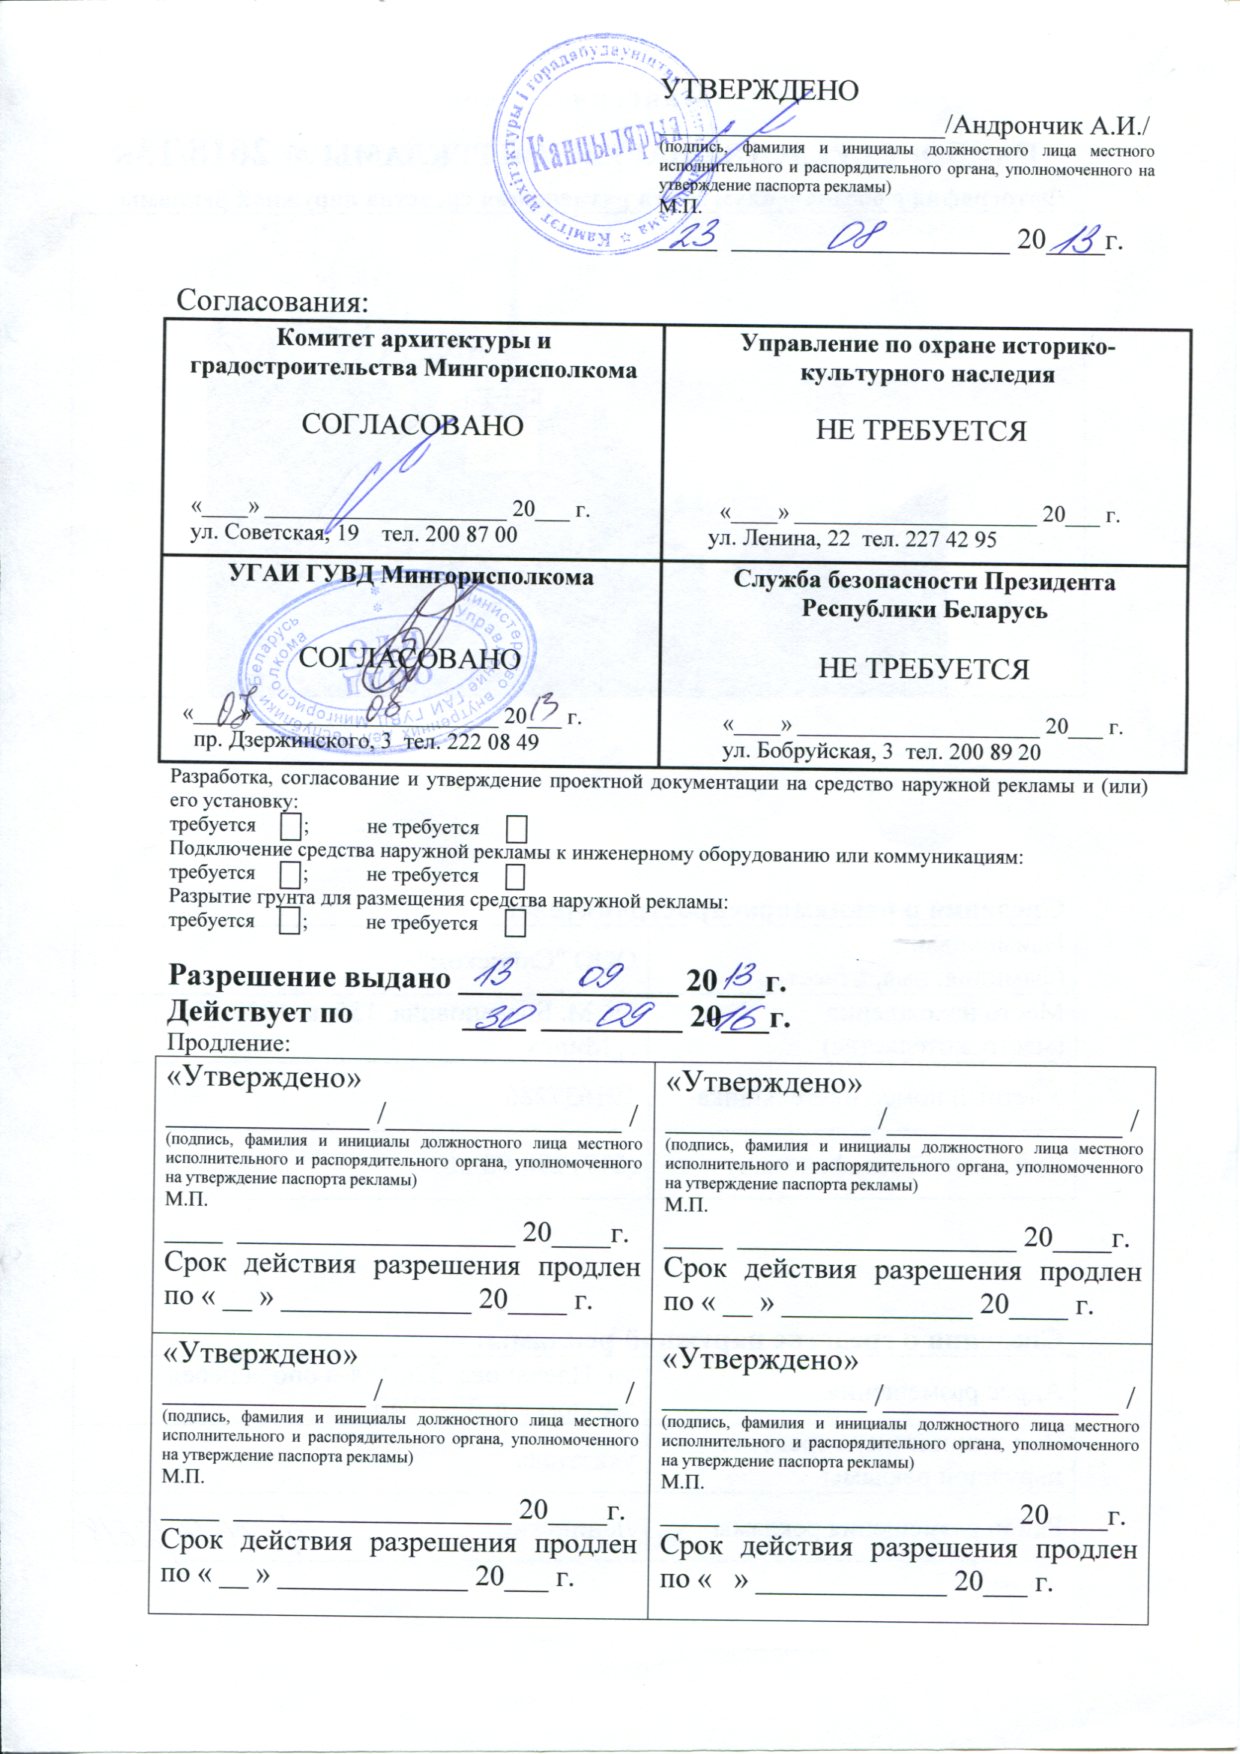 УТВЕРЖДЕНО
____________________/Андрончик А.И./
(подпись, фамилия и инициалы должностного лица местного
исполнительного и распорядительного органа, уполномоченного на
утверждение паспорта рекламы)
М.П.
23 08 2013г.
Камітэт архітэктуры і горадабудаўніцтва
Канцылярыя
Согласования:
Комитет архитектуры и
градостроительства Мингорисполкома
СОГЛАСОВАНО
«____» ____________________ 20___ г.
ул. Советская, 19 тел. 200 87 00
Управление по охране историко-
культурного наследия
НЕ ТРЕБУЕТСЯ
«____» ____________________ 20___ г.
ул. Ленина, 22 тел. 227 42 95
УГАИ ГУВД Мингорисполкома
СОГЛАСОВАНО
«07» 08 2013 г.
пр. Дзержинского, 3 тел. 222 08 49
Служба безопасности Президента
Республики Беларусь
НЕ ТРЕБУЕТСЯ
«____» ____________________ 20___ г.
ул. Бобруйская, 3 тел. 200 89 20
Разработка, согласование и утверждение проектной документации на средство наружной рекламы и (или)
его установку:
требуется ; не требуется
Подключение средства наружной рекламы к инженерному оборудованию или коммуникациям:
требуется ; не требуется
Разрытие грунта для размещения средства наружной рекламы:
требуется ; не требуется
Разрешение выдано 13 09 2013г.
Действует по 30 09 2016г.
Продление:
«Утверждено»
______________ /________________ /
(подпись, фамилия и инициалы должностного лица местного
исполнительного и распорядительного органа, уполномоченного
на утверждение паспорта рекламы)
М.П.
____ ___________________ 20____г.
Срок действия разрешения продлен
по « __ » _____________ 20____ г.
«Утверждено»
______________ /________________ /
(подпись, фамилия и инициалы должностного лица местного
исполнительного и распорядительного органа, уполномоченного
на утверждение паспорта рекламы)
М.П.
____ ___________________ 20____г.
Срок действия разрешения продлен
по « __ » _____________ 20____ г.
«Утверждено»
______________ /________________ /
(подпись, фамилия и инициалы должностного лица местного
исполнительного и распорядительного органа, уполномоченного
на утверждение паспорта рекламы)
М.П.
____ ___________________ 20____г.
Срок действия разрешения продлен
по « __ » _____________ 20___ г.
«Утверждено»
______________ /________________ /
(подпись, фамилия и инициалы должностного лица местного
исполнительного и распорядительного органа, уполномоченного
на утверждение паспорта рекламы)
М.П.
____ ___________________ 20____г.
Срок действия разрешения продлен
по «   » _____________ 20___ г.